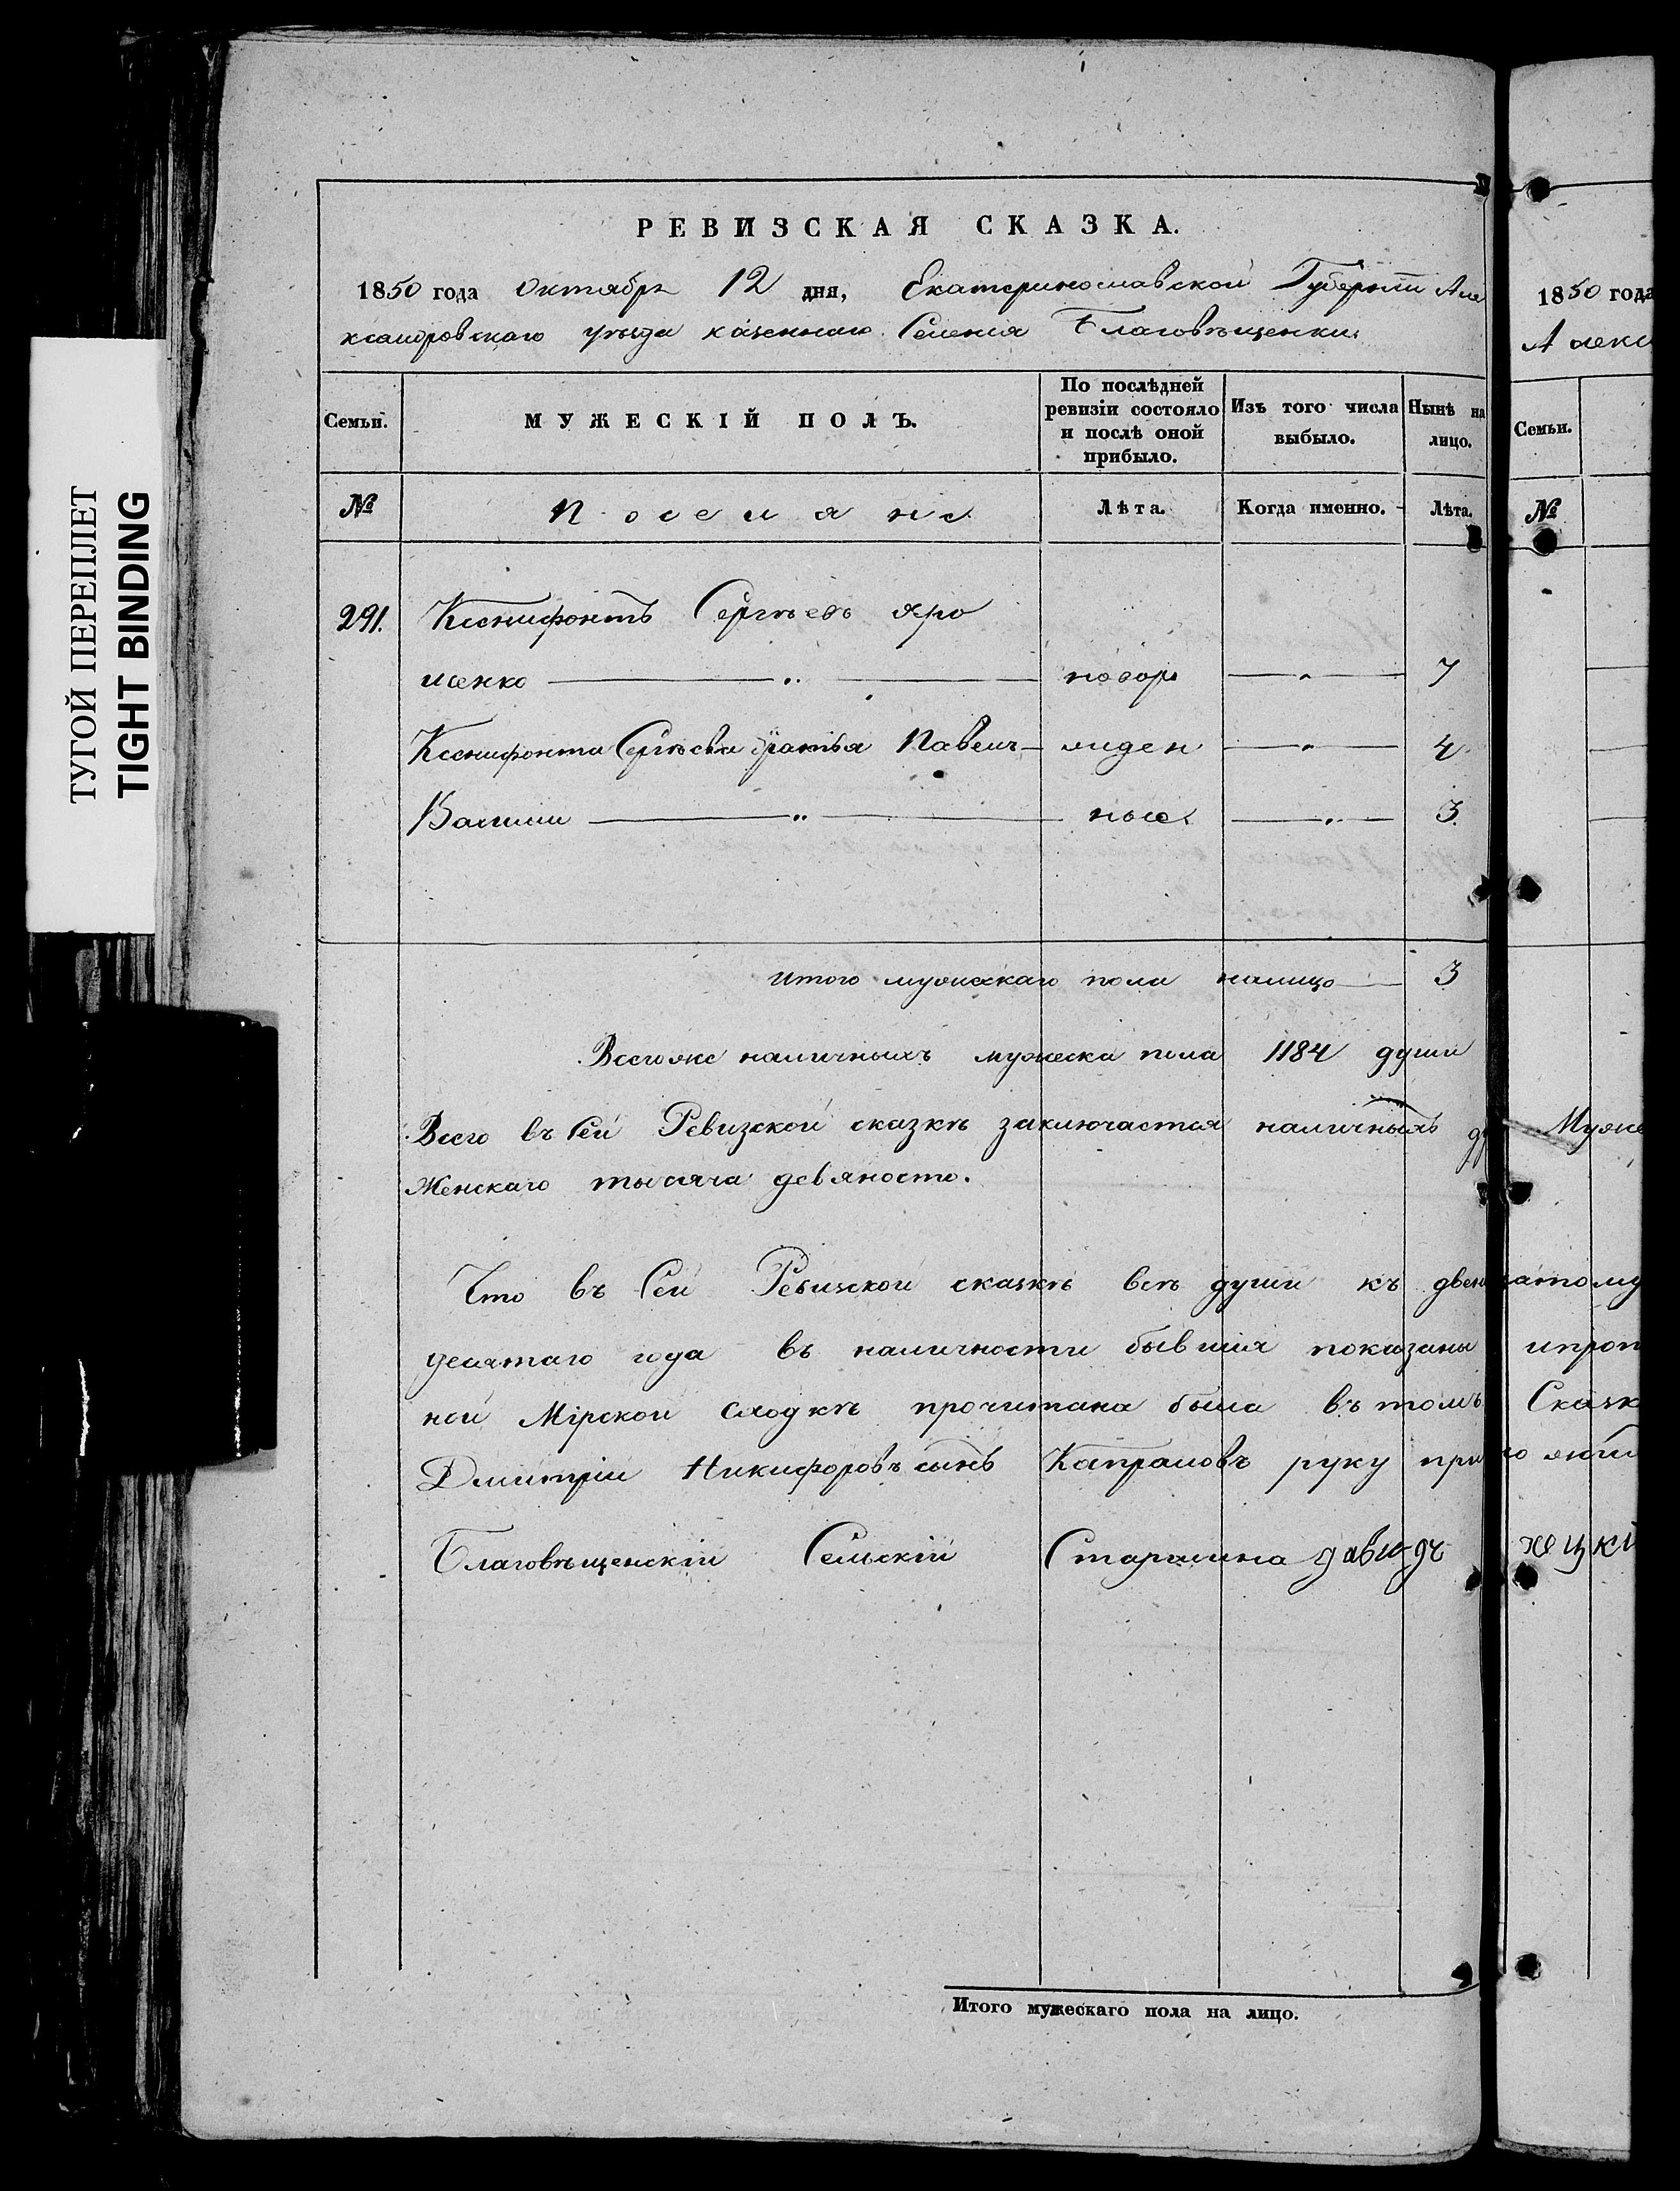 РЕВИЗСКАЯ СКАЗКА.
1850 года Октября 12 дня, Екатеринославской Губерніи Але
ксандровскаго уѣзда казеннаго Селенія Благовѣщенки.
Семьи. МУЖЕСКІЙ ПОЛЪ. По послѣдней ревизіи состояло и послѣ оной прибыло. Изъ того числа выбыло. Нынѣ на лицо.
№ Поселяне Лѣта. Когда именно. Лѣта.
291. Ксенифонтъ Сергѣевъ Яро
шенко новоро 7
Ксенифонта Сергѣева братья Павелъ жиден 4
ные 3
итого мужескаго пола налицо 3
Всегоже наличныхъ мужеска пола 1184 души
Всего въ Сей Ревизской сказкѣ заключается наличныхъ ду
Женскаго тысяча девяносто.
Что въ Сей Ревизской сказкѣ всѣ души къ двен
десятаго года въ наличности бывшія показаны
ной Мірской сходкѣ прочитана была въ томъ
Дмитрій Никифоровъ сынъ Капрановъ руку при
Благовѣщенскій Сельскій Старшина Давидъ
1850 года
Алекс
Семьи.
№
Муже
атому
ипроп
Сказк
хецкі
Итого мужескаго пола на лицо.
ТУГОЙ ПЕРЕПЛЕТ
TIGHT BINDING